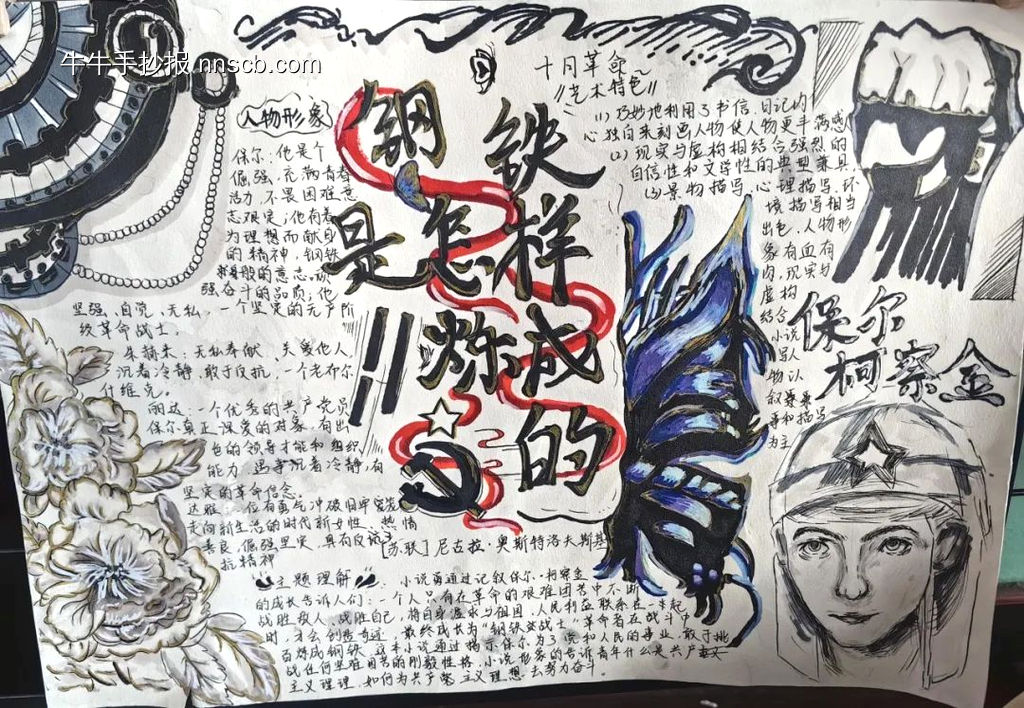 牛牛手抄报 nnscb.com
人物形象
保尔:他是个
倔强、充满青春
活力、不畏困难、意
志坚定;他有着
为理想而献身
的精神、钢铁
般的意志、顽
强奋斗的品质;他
坚强、自觉、无私,一个坚定的无产阶
级革命战士。
朱赫来:无私奉献、关爱他人、
沉着冷静、敢于反抗,一个老布尔
什维克。
丽达:一个优秀的共产党员
保尔真正深爱的对象,有出
色的领导才能和组织
能力,遇事沉着冷静,有
坚定的革命信念。
达雅:一位有勇气冲破旧
走向新生活的时代新女性、热情
善良、倔强坚定,具有反
抗精神
钢铁
是怎样
炼成
的
[苏联]尼古拉·奥斯特洛夫斯基
十月革命
艺术特色
(1)巧妙地利用了书信、日记、内
心独白来刻画人物使人物更丰满感人
(2)现实与虚构相结合强烈的
自信性和文学性的典型兼具
(3)景物描写、心理描写、环
境描写相当
出色,人物形
象有血有
肉,现实与
虚构
结合
小说
写人
物以
叙事
和描写
为主
保尔
柯察金
主题理解
小说通过记叙保尔·柯察金
的成长告诉人们:一个人只有在革命的艰难困苦中不断
战胜敌人、战胜自己,将自身追求与祖国、人民利益联系在一起
时,才会创造奇迹,最终成长为“钢铁战士”革命者在战斗中
百炼成钢铁,这本小说通过揭示保尔为了党和人民的事业,敢于挑
战任何坚难困苦的刚毅性格,小说形象的告诉青年什么是共产
主义理理,如何为共产主义理想去努力奋斗。